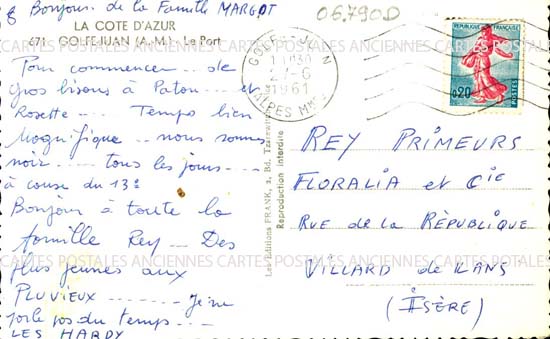 & Bonjour de la Famille MARGOT
06.790D
LA COTE D'AZUR
671 - GOLFE-JUAN (A.-M.) - Le Port
Pour commencer .. de
gros bisous à Patou .. et
Rosette ... Temps bien
Magnifique .. nous sommes
noir ... tous les jours ...
à cause du 13°
Bonjour à toute la
famille Rey .. Des
plus jeunes aux
PLUVIEUX ........ Je ne
parle pas du temps ...
LES HARDY
GOLFE-JUAN
1961
ALPES MMES
REPUBLIQUE FRANÇAISE
0,20
POSTES
Les Editions FRANK, 2, Bd.
Reproduction interdite
REY PRIMEURS
FLORALIA et Cie
RUE de la RÈPUBLIQUE
VILLARD de LANS
(ISÈRE)
CARTES POSTALES ANCIENNES CARTES POSTALES ANCIENNES CARTES POSTALES